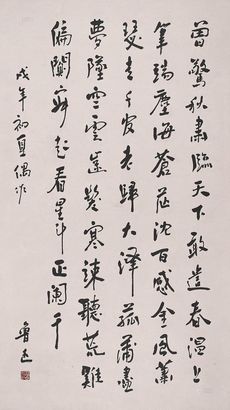 曾驚秋肅臨天下敢遣春溫上
筆端塵海蒼茫沈百感金風蕭
瑟走千官老歸大澤菰蒲盡
夢墜空雲齒髮寒竦聽荒雞
偏闃寂起看星斗正闌干
戊年初夏偶作
魯迅